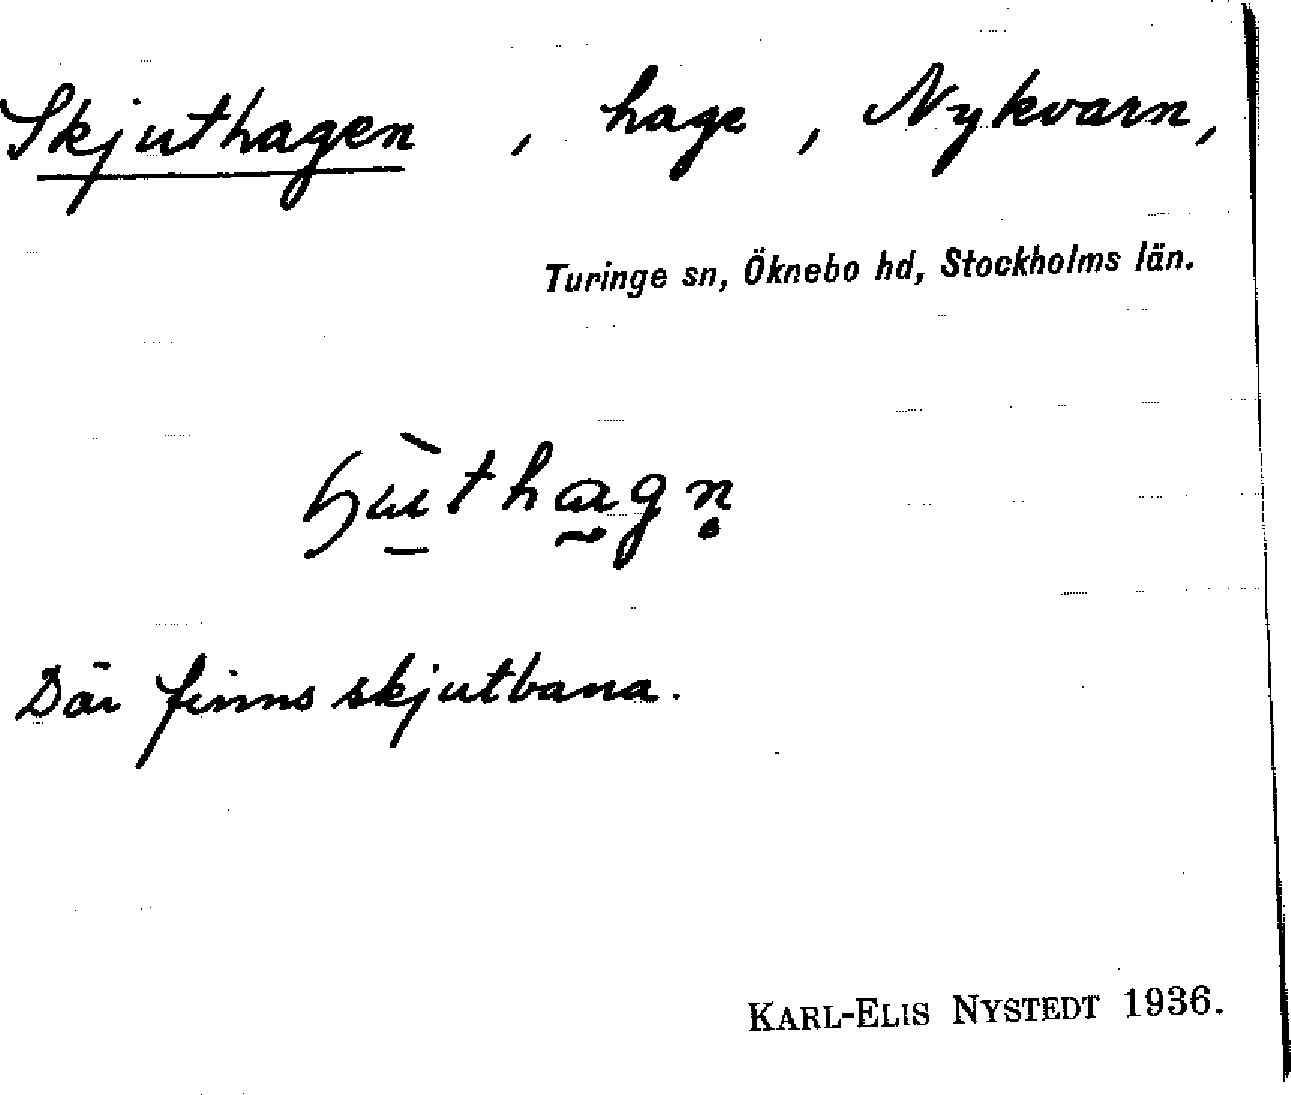 Skjuthagen, hage, Nykvarn,
Turinge sn, Öknebo hd, Stockholms län.
Där finns skjutbana.
KARL-ELIS NYSTEDT 1936.